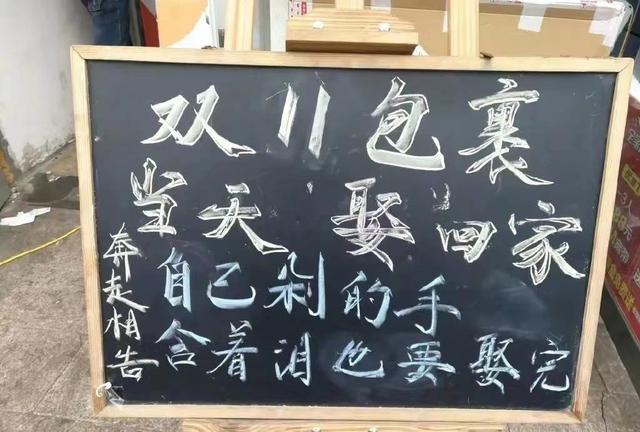 双11包裹
当天娶回家
自己剁的手
含着泪也要娶完
奔走相告